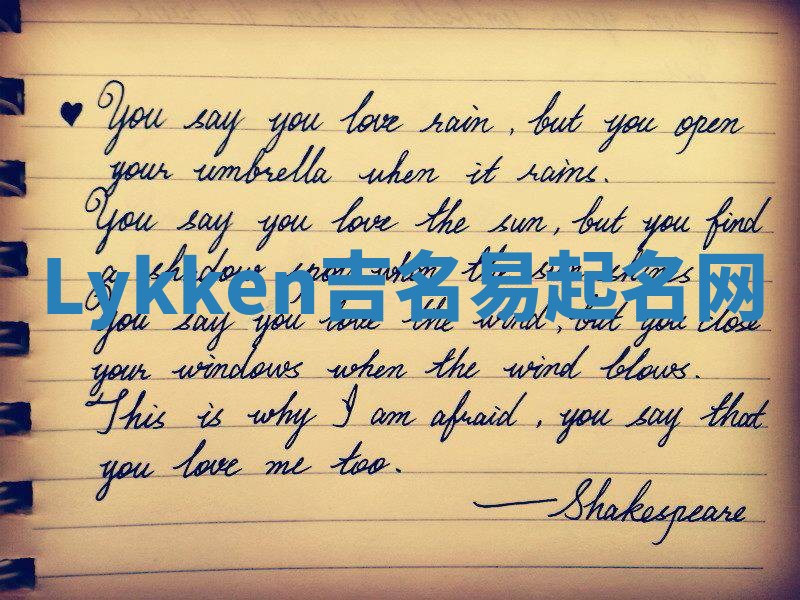 ♥ You say you love rain, but you open
your umbrella when it rains.
You say you love the sun, but you find
a shadow spot when the sun shines
Lykken吉名易起名网
You say you love the wind, but you close
your windows when the wind blows.
This is why I am afraid, you say that
you love me too.
— Shakespeare